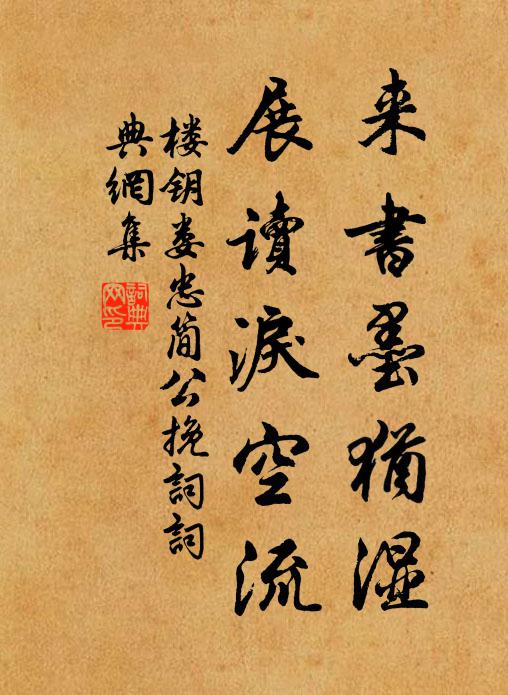 来書墨猶濕
展讀淚空流
楼钥娄忠简公挽詞詞
典網集
詞典網印